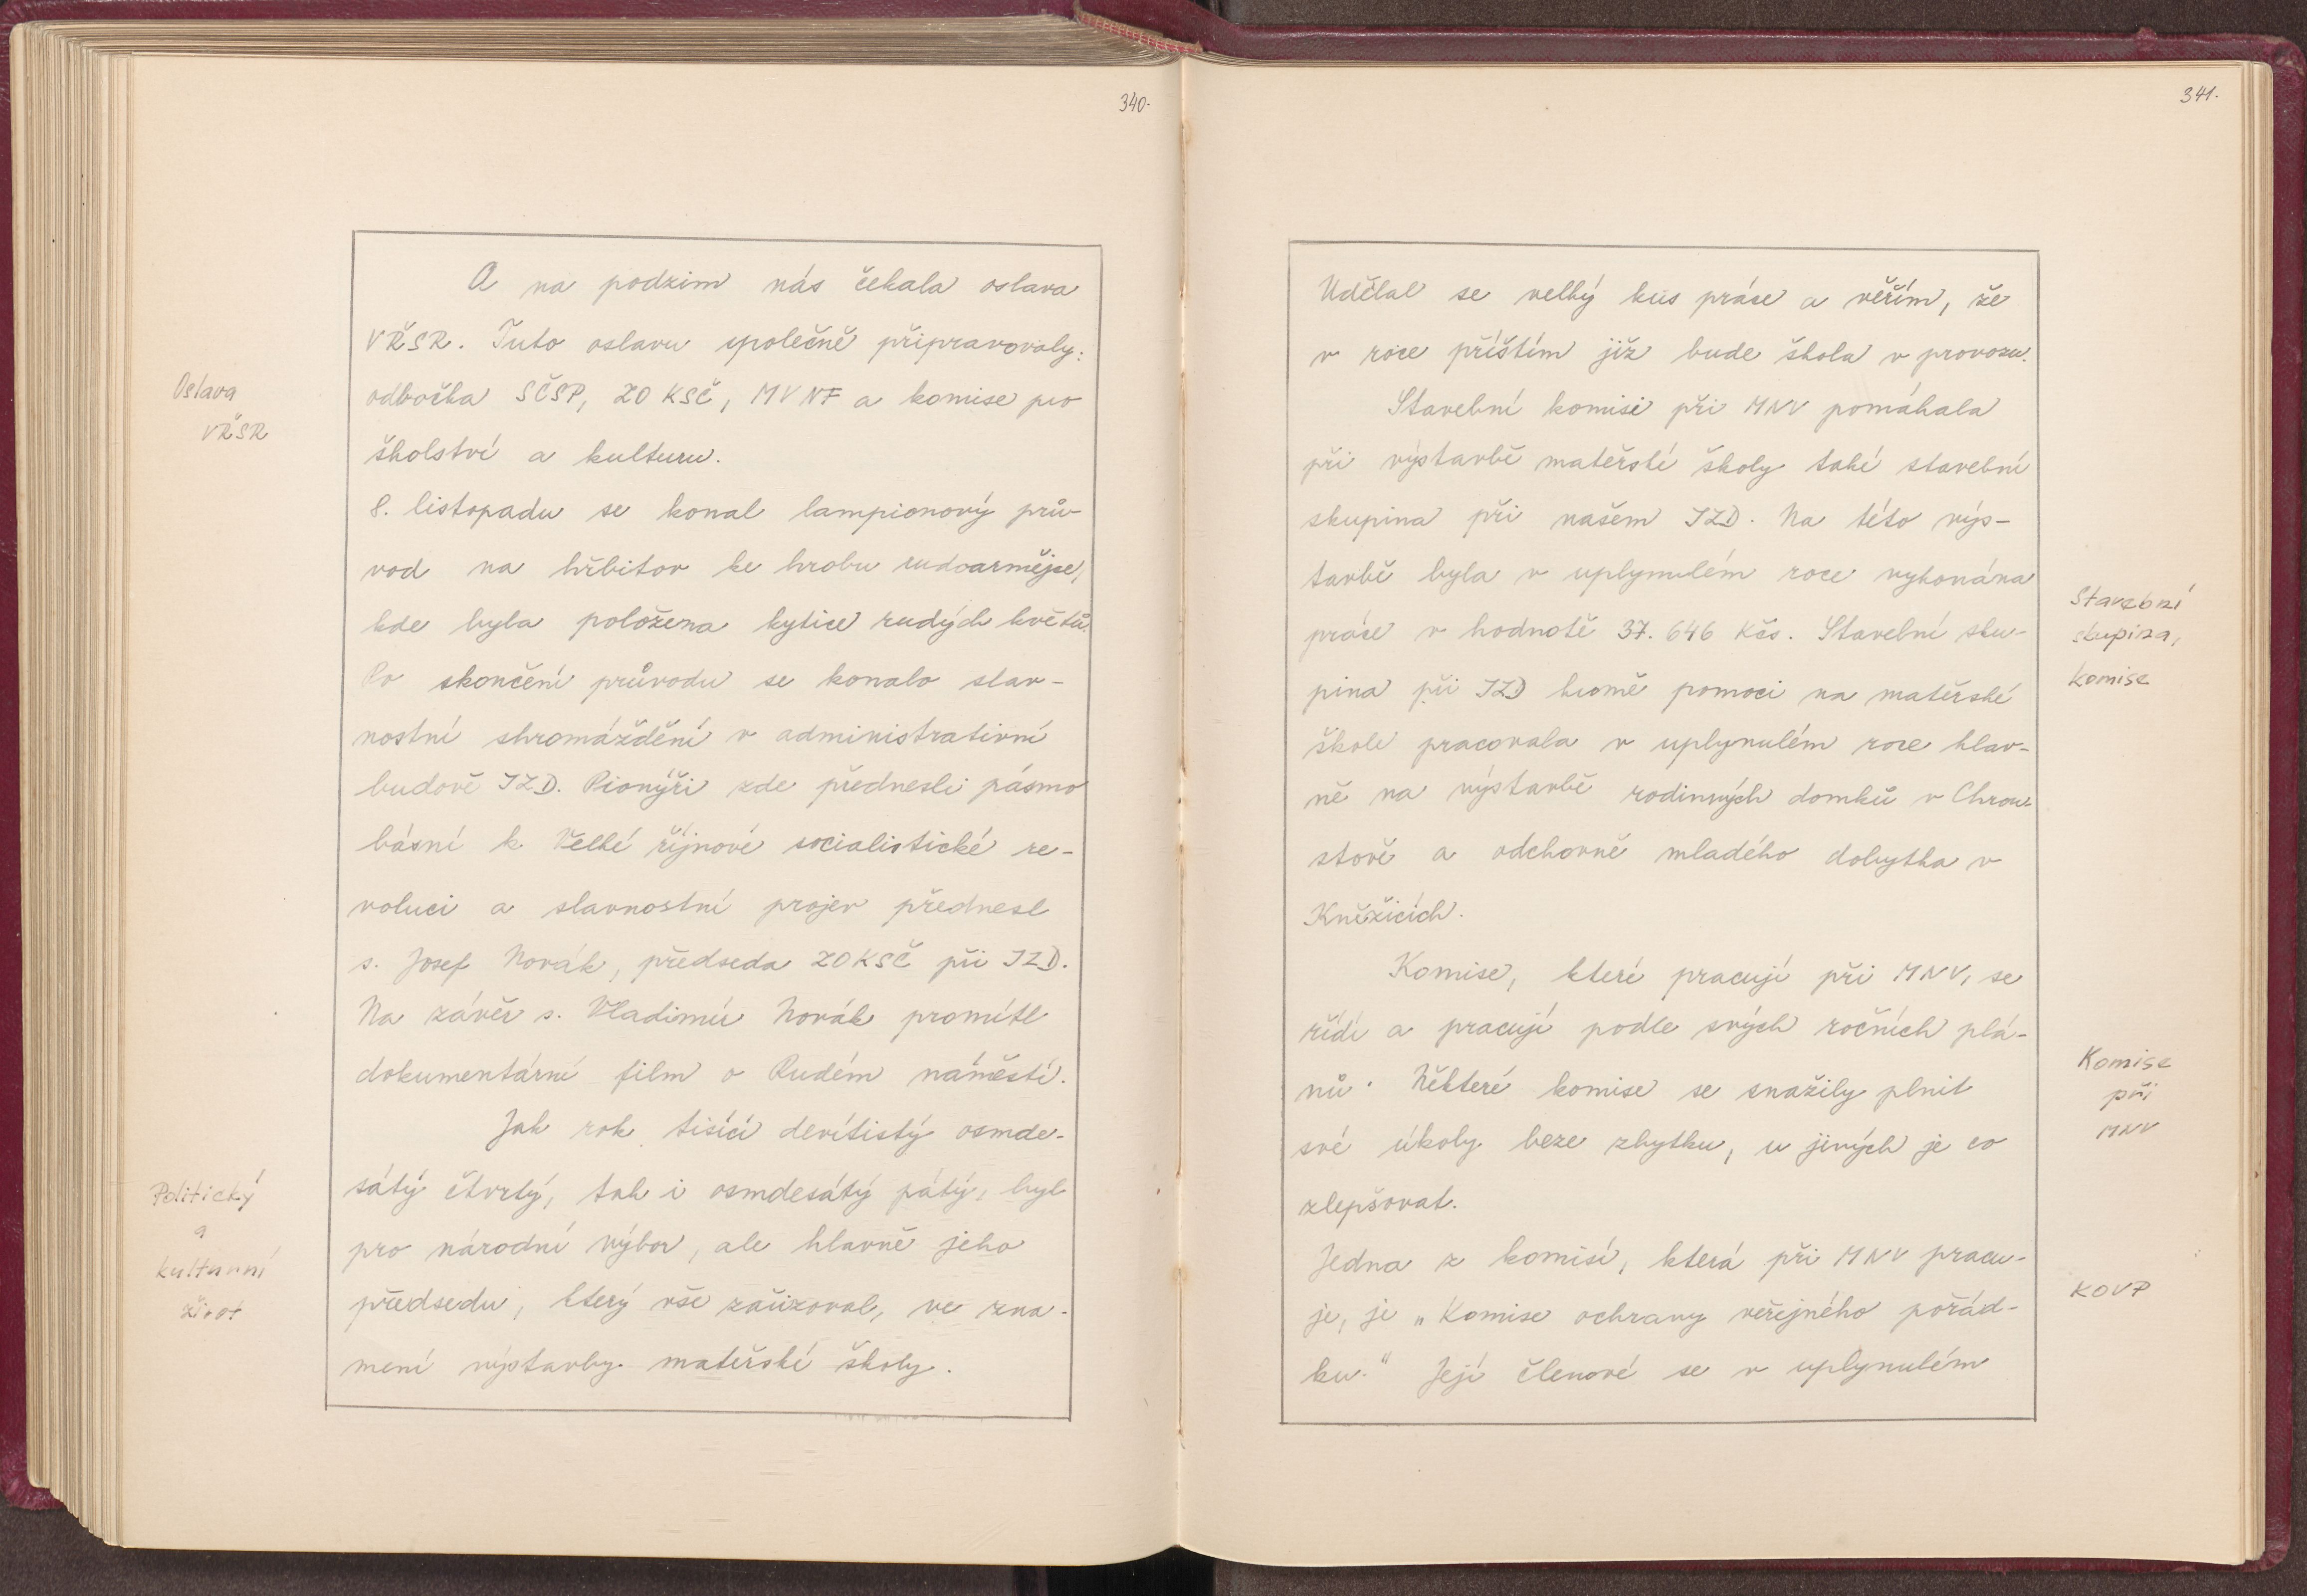 340.
Oslava
VŘSR
A na podzim nás čekala oslava
VŘSR. Tuto oslavu společně připravovaly:
odbočka SČSP, ZO KSČ, MV NF a komise pro
školství a kulturu.
8. listopadu se konal lampionový prů-
vod na hřbitov ke hrobu rudoarmějce,
kde byla položena kytice rudých květů.
Po skončení průvodu se konalo slav-
nostní shromáždění v administrativní
budově JZD. Pionýři zde přednesli pásmo
básní k Velké říjnové socialistické re-
voluci a slavnostní projev přednesl
s. Josef Novák, předseda ZO KSČ při JZD.
Na závěr s. Vladimír Novák promítl
dokumentární film o Rudém náměstí.
Politický
a
kulturní
život
Jak rok tisící devítistý osmde-
sátý čtvrtý, tak i osmdesátý pátý, byl
pro národní výbor, ale hlavně jeho
předsedu, který vše zařizoval, ve zna-
mení výstavby mateřské školy.
341.
Udělal se velký kus práce a věřím, že
v roce příštím již bude škola v provozu.
Stavební komisi při MNV pomáhala
při výstavbě mateřské školy také stavební
skupina při našem JZD. Na této výs-
tavbě byla v uplynulém roce vykonána
práce v hodnotě 37.646 Kčs. Stavební sku-
pina při JZD kromě pomoci na mateřské
škole pracovala v uplynulém roce hlav-
ně na výstavbě rodinných domků v Chrou-
stově a odchovně mladého dobytka v
Kněžicích.
Stavební
skupina,
komise
Komise, které pracují při MNV, se
řídí a pracují podle svých ročních plá-
nů. Některé komise se snažily plnit
své úkoly beze zbytku, u jiných je co
zlepšovat.
Komise
při
MNV
Jedna z komisí, která při MNV pracu-
je, je „Komise ochrany veřejného pořád-
ku." Její členové se v uplynulém
KOVP